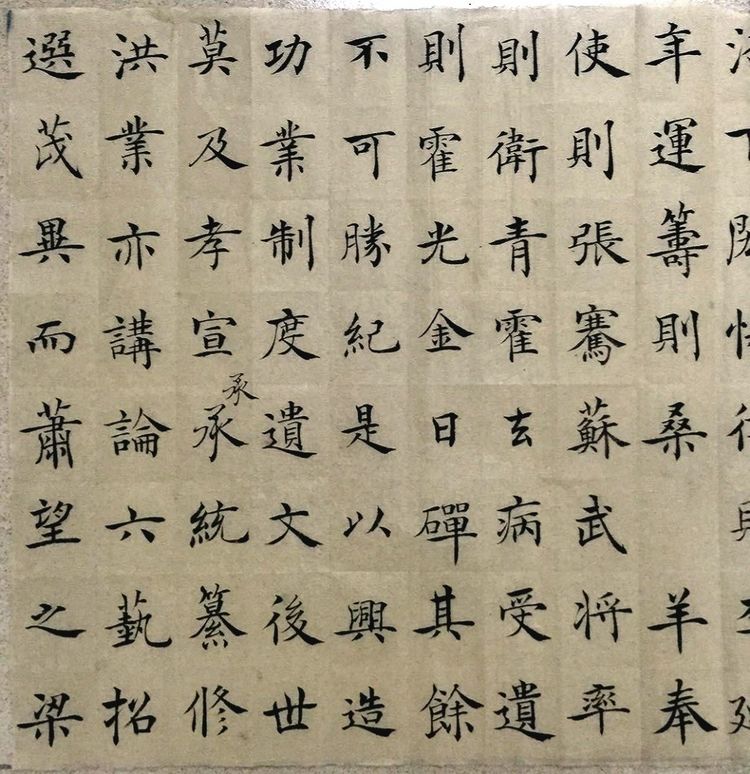 年運籌則桑羊奉
使則張騫蘇武将率
則衛青霍去病受遺
則霍光金日磾其餘
不可勝紀是以興造
功業制度遺文後世
承
莫及孝宣承統纂修
洪業亦講論六藝招
選茂異而蕭望之梁